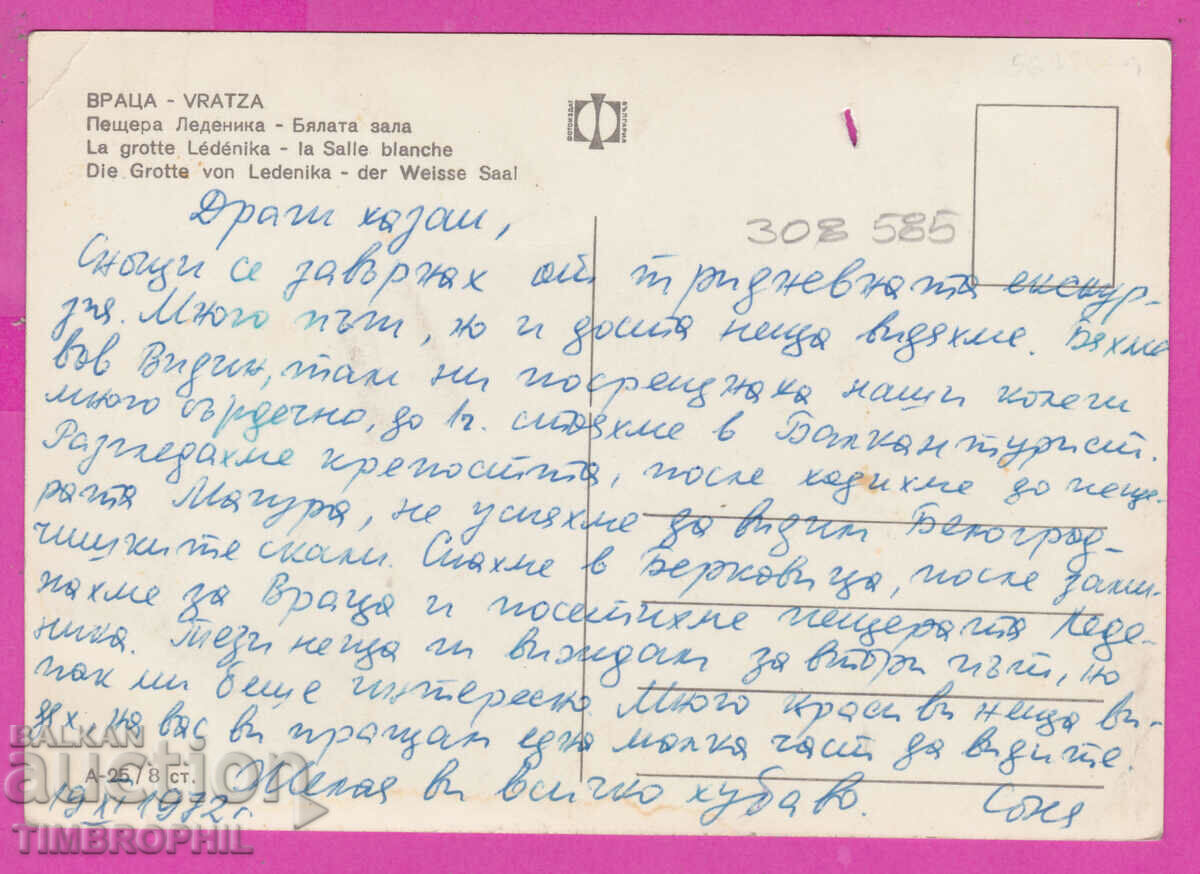 ВРАЦА - VRATZA
Пещера Леденика - Бялата зала
La grotte Lédénika - la Salle blanche
Die Grotte von Ledenika - der Weisse Saal
ФОТОИЗДАТ
БЪЛГАРИЯ
308 585
Драги хазаи,
Снощи се завържах от тридневната екскур-
зия. Много път, но и доста неща видяхме. Бяхме
във Видин, там ни посрещнаха наши колеги
много сърдечно, до 1 ч. стояхме в Балкантурист.
Разгледахме крепостта, после ходихме до пеще-
рата Магура, не успяхме да видим Белоград-
чишките скали. Спахме в Берковица, после зами-
нахме за Враца и посетихме пещерата Леде-
ника. Тези неща ги виждам за втори път, но
пак ми беше интересно. Много красиви неща ви-
дях, на вас ви пращам една малка част да видите.
Желая ви всичко хубаво. Соня
А-25/8 ст.
19 XI 1972 г.
BALKAN
auction
TIMBROPHIL